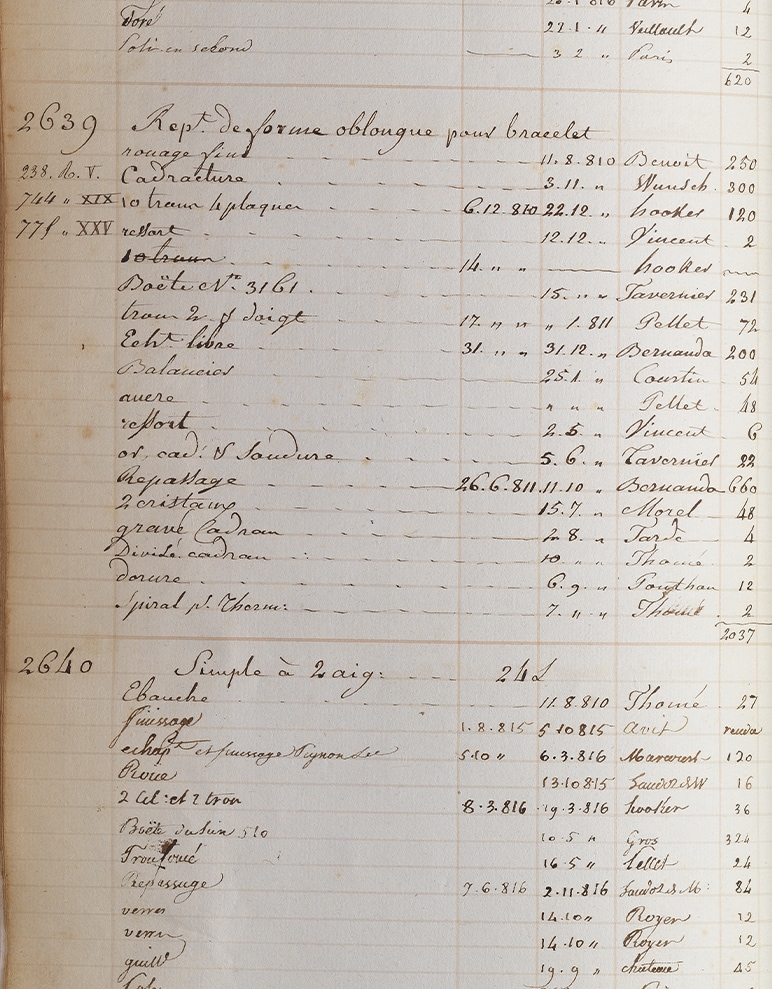 26.1.810 4
Doré 27.1. " Veillault 12
Poli en second 3 2 " Paris 2
620
2639 Rept. de forme oblongue pour bracelet
rouage fini 11.8.810 Benoit 250
238. R. V. Cadracture 3.11. " Wunsch 300
744 " XIX 10 troux 4 plaques 6.12.810 22.12. " hooker 120
775 " XXV ressort 12.12. " Vincent 2
10 troux 14. " " hooker
Boëte No. 3161. 15. " " Tavernier 231
troux 2 f doigt 17. " " " 1.811 Pellet 72
Echt. libre 31. " " 31.12. " Bernauda 200
Balancier 25.1. " Courtin 54
ancre " " " Pellet 48
ressort 2.5. " Vincent 6
or. cad: & Soudure 5.6. " Tavernier 22
Repassage 26.6.811. 11.10 " Bernauda 660
2 cristaux 15.7. " Morel 48
gravé Cadran 2.8. " Tarde 4
Divisé. cadran 10. " " Thomé 2
dorure 6.9. " Pouthan 12
Spiral pr. Therm: 7. " " Thomé 2
2037
2640 Simple à 2 aig: 24 L
Ebauche 11.8.810 Thomé 27
finissage 1.8.815 5 10 815 avit rendu
echapt et finissage Pignon 5.10 " 6.3.816 120
Roue 13.10 815 16
2 Cil: et 2 trou 8.3.816 19.3.816 hooker 36
Boëte 510 10.5 " Gros 324
16.5 " Pellet 24
Repassage 7.6.816 2.11.816 84
verre 14.10 " Royer 12
verre 14.10 " Royer 12
guill 19.9 " 45